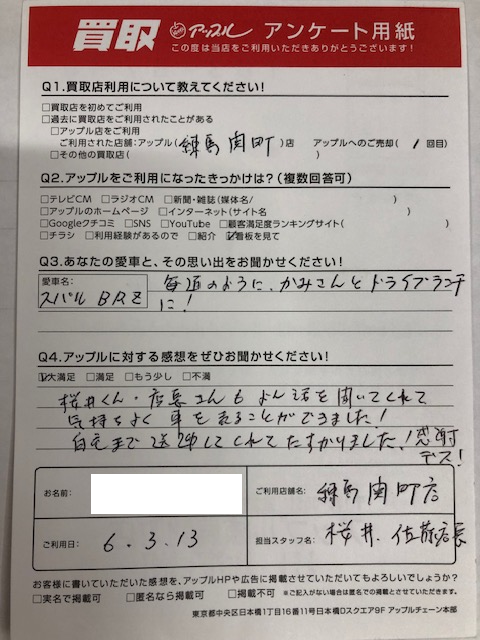 買取 アップル アンケート用紙
この度は当店をご利用いただきありがとうございます！
Q1.買取店利用について教えてください！
□買取店を初めてご利用
□過去に買取店をご利用されたことがある
□アップル店をご利用
ご利用された店舗:アップル(練馬関町)店 アップルへのご売却(1回目)
□その他の買取店( )
Q2.アップルをご利用になったきっかけは？(複数回答可)
□テレビCM □ラジオCM □新聞・雑誌(媒体名/ )
□アップルのホームページ □インターネット(サイト名 )
□Googleクチコミ □SNS □YouTube □顧客満足度ランキングサイト( )
□チラシ □利用経験があるので □紹介 ☑看板を見て
Q3.あなたの愛車と、その思い出をお聞かせください！
愛車名:
スバル BRZ
毎週のように、かみさんとドライブランチ
に！
Q4.アップルに対する感想をぜひお聞かせください！
☑大満足 □満足 □もう少し □不満
桜井くん・店長さんもよく話を聞いてくれて
気持ちよく車を売ることができました！
自宅まで送迎してくれてたすかりました！感謝
デス！
お名前:
ご利用店舗名: 練馬関町店
ご利用日: 6.3.13
担当スタッフ名: 桜井、佐藤店長
お客様に書いていただいた感想を、アップルHPや広告に掲載させていただいてもよろしいでしょうか？
□実名で掲載可 □匿名なら掲載可 □掲載不可 ※ご記入がない場合は匿名での掲載とさせていただきます。
東京都中央区日本橋1丁目16番11号日本橋Dスクエア9F アップルチェーン本部